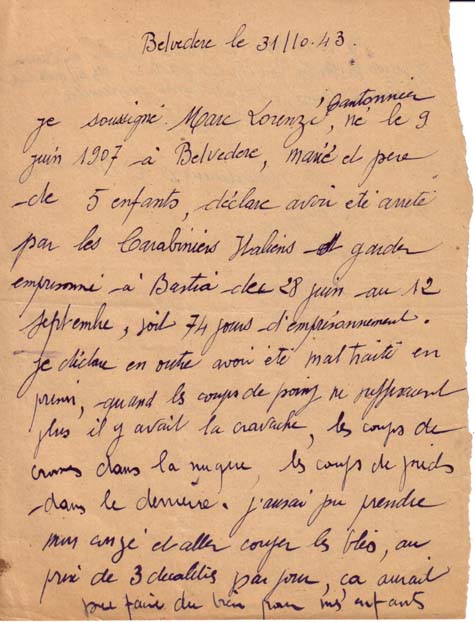 Belvedere le 31/10.43.
je soussigné Marc Lorenzi, Cantonnier, né le 9
juin 1907 à Belvedere, marié et père
de 5 enfants, déclare avoir été arrêté
par les Carabiniers Italiens et garder
emprisonné à Bastia du 28 juin au 12
septembre, soit 74 jours d'emprisonnement.
je déclare en outre avoir été maltraité en
prison, quand les coups de poing ne suffisaient
plus il y avait la cravache, les coups de
crosses dans la nuque, les coups de pieds
dans le derrière. j'aurai pu prendre
mon congé et aller couper les blés, au
prix de 3 decalitres par jour, ca aurait
pu faire du bien pour mes enfants